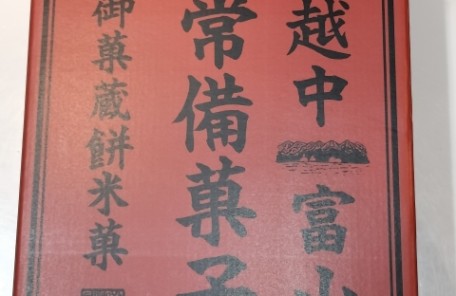 越中富山
常備菓子
御菓蔵餅米菓